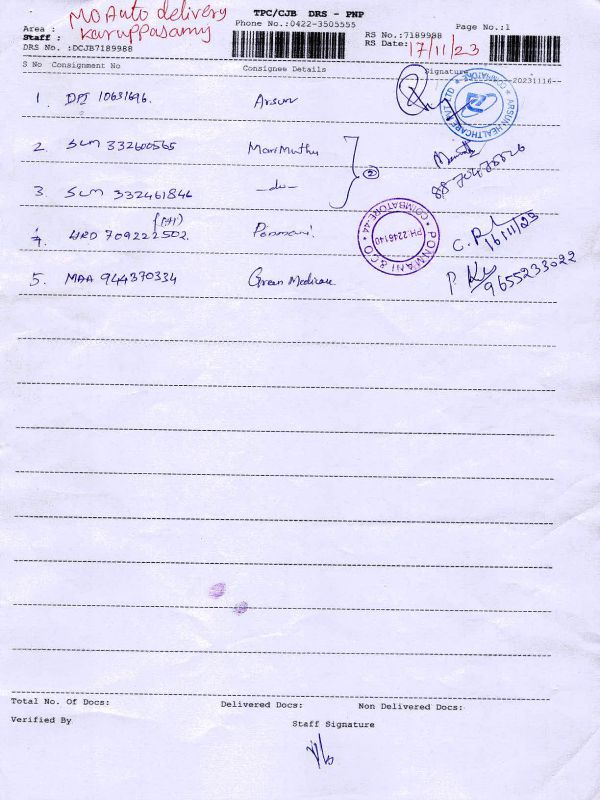 TPC/CJB DRS - PNP
Phone No.:0422-3505555
Page No.:1
Area : MO Auto delivery
Staff : Karuppasamy
RS No.:7189988
RS Date: 17/11/23
DRS No. :DCJB7189988
S No Consignment No Consignee Details Signature
20231116
1. DPI 10631696. Arsun
ARSUN HEALTHCARE PVT LTD * COIMBATORE *
2. SLM 332600565 MariMuthu
3. SLM 332461846 -do- 2
4. HRD 709222502. Ponmani.
PONMANI & CO
COIMBATORE-44
PH:2246140
16/11/23
5. MAA 944370334 Green Medicare
9655233022
Total No. Of Docs: Delivered Docs: Non Delivered Docs:
Verified By
Staff Signature